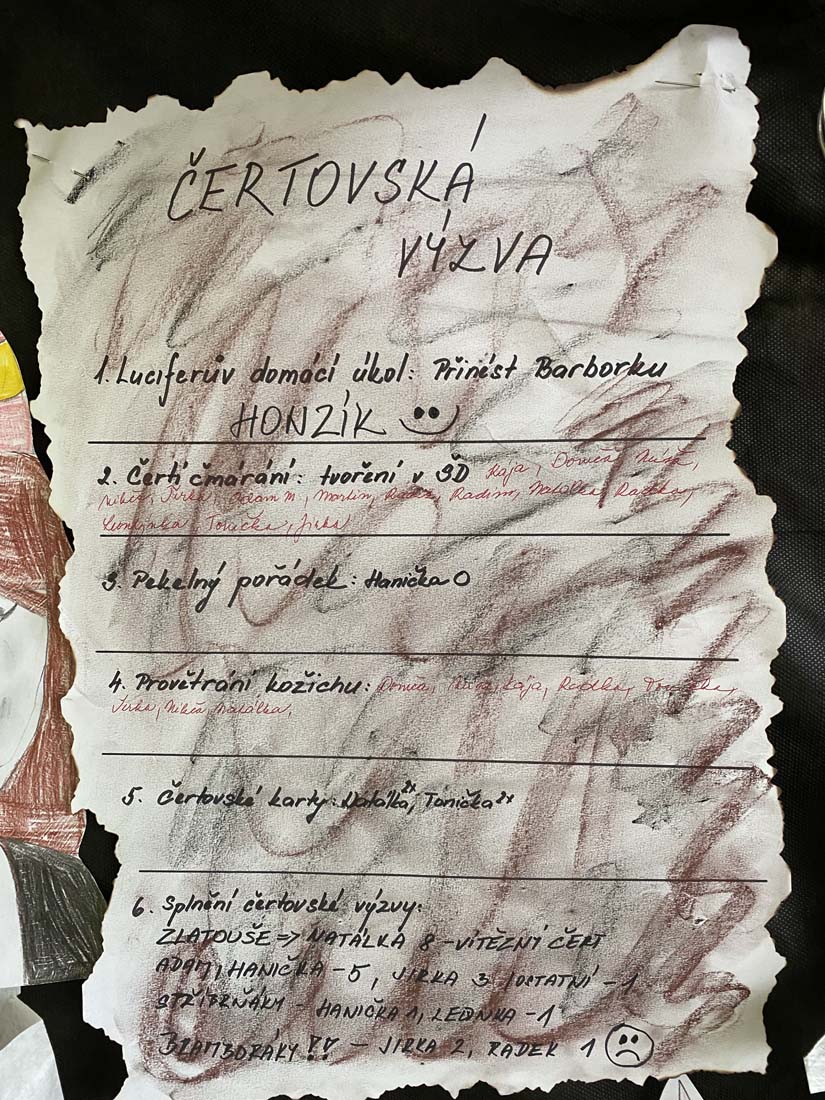 ČERTOVSKÁ
VÝZVA
1. Luciferův domácí úkol: Přinést Barborku
HONZÍK
2. Čertí čmárání: tvoření v ŠD Kája, Domča,
Nikča, Jirka, Adam M, Martin, Radek, Radim, Natálka, Radka,
Tonička, Jirka
3. Pekelný pořádek: Hanička O
4. Provětrání kožichu: Domča, Kája, Radka, Tonička,
Jirka, Nikča, Natálka,
5. Čertovské karty: Natálka 2x, Tonička 2x
6. Splnění čertovské výzvy:
ZLATOUŠE => NATÁLKA 8 - VÍTĚZNÝ ČERT
ADAM, HANIČKA - 5, JIRKA 3, OSTATNÍ - 1
STŘÍBRŇÁKY - HANIČKA 1, LEONKA - 1
BRAMBORÁKY!! - JIRKA 2, RADEK 1